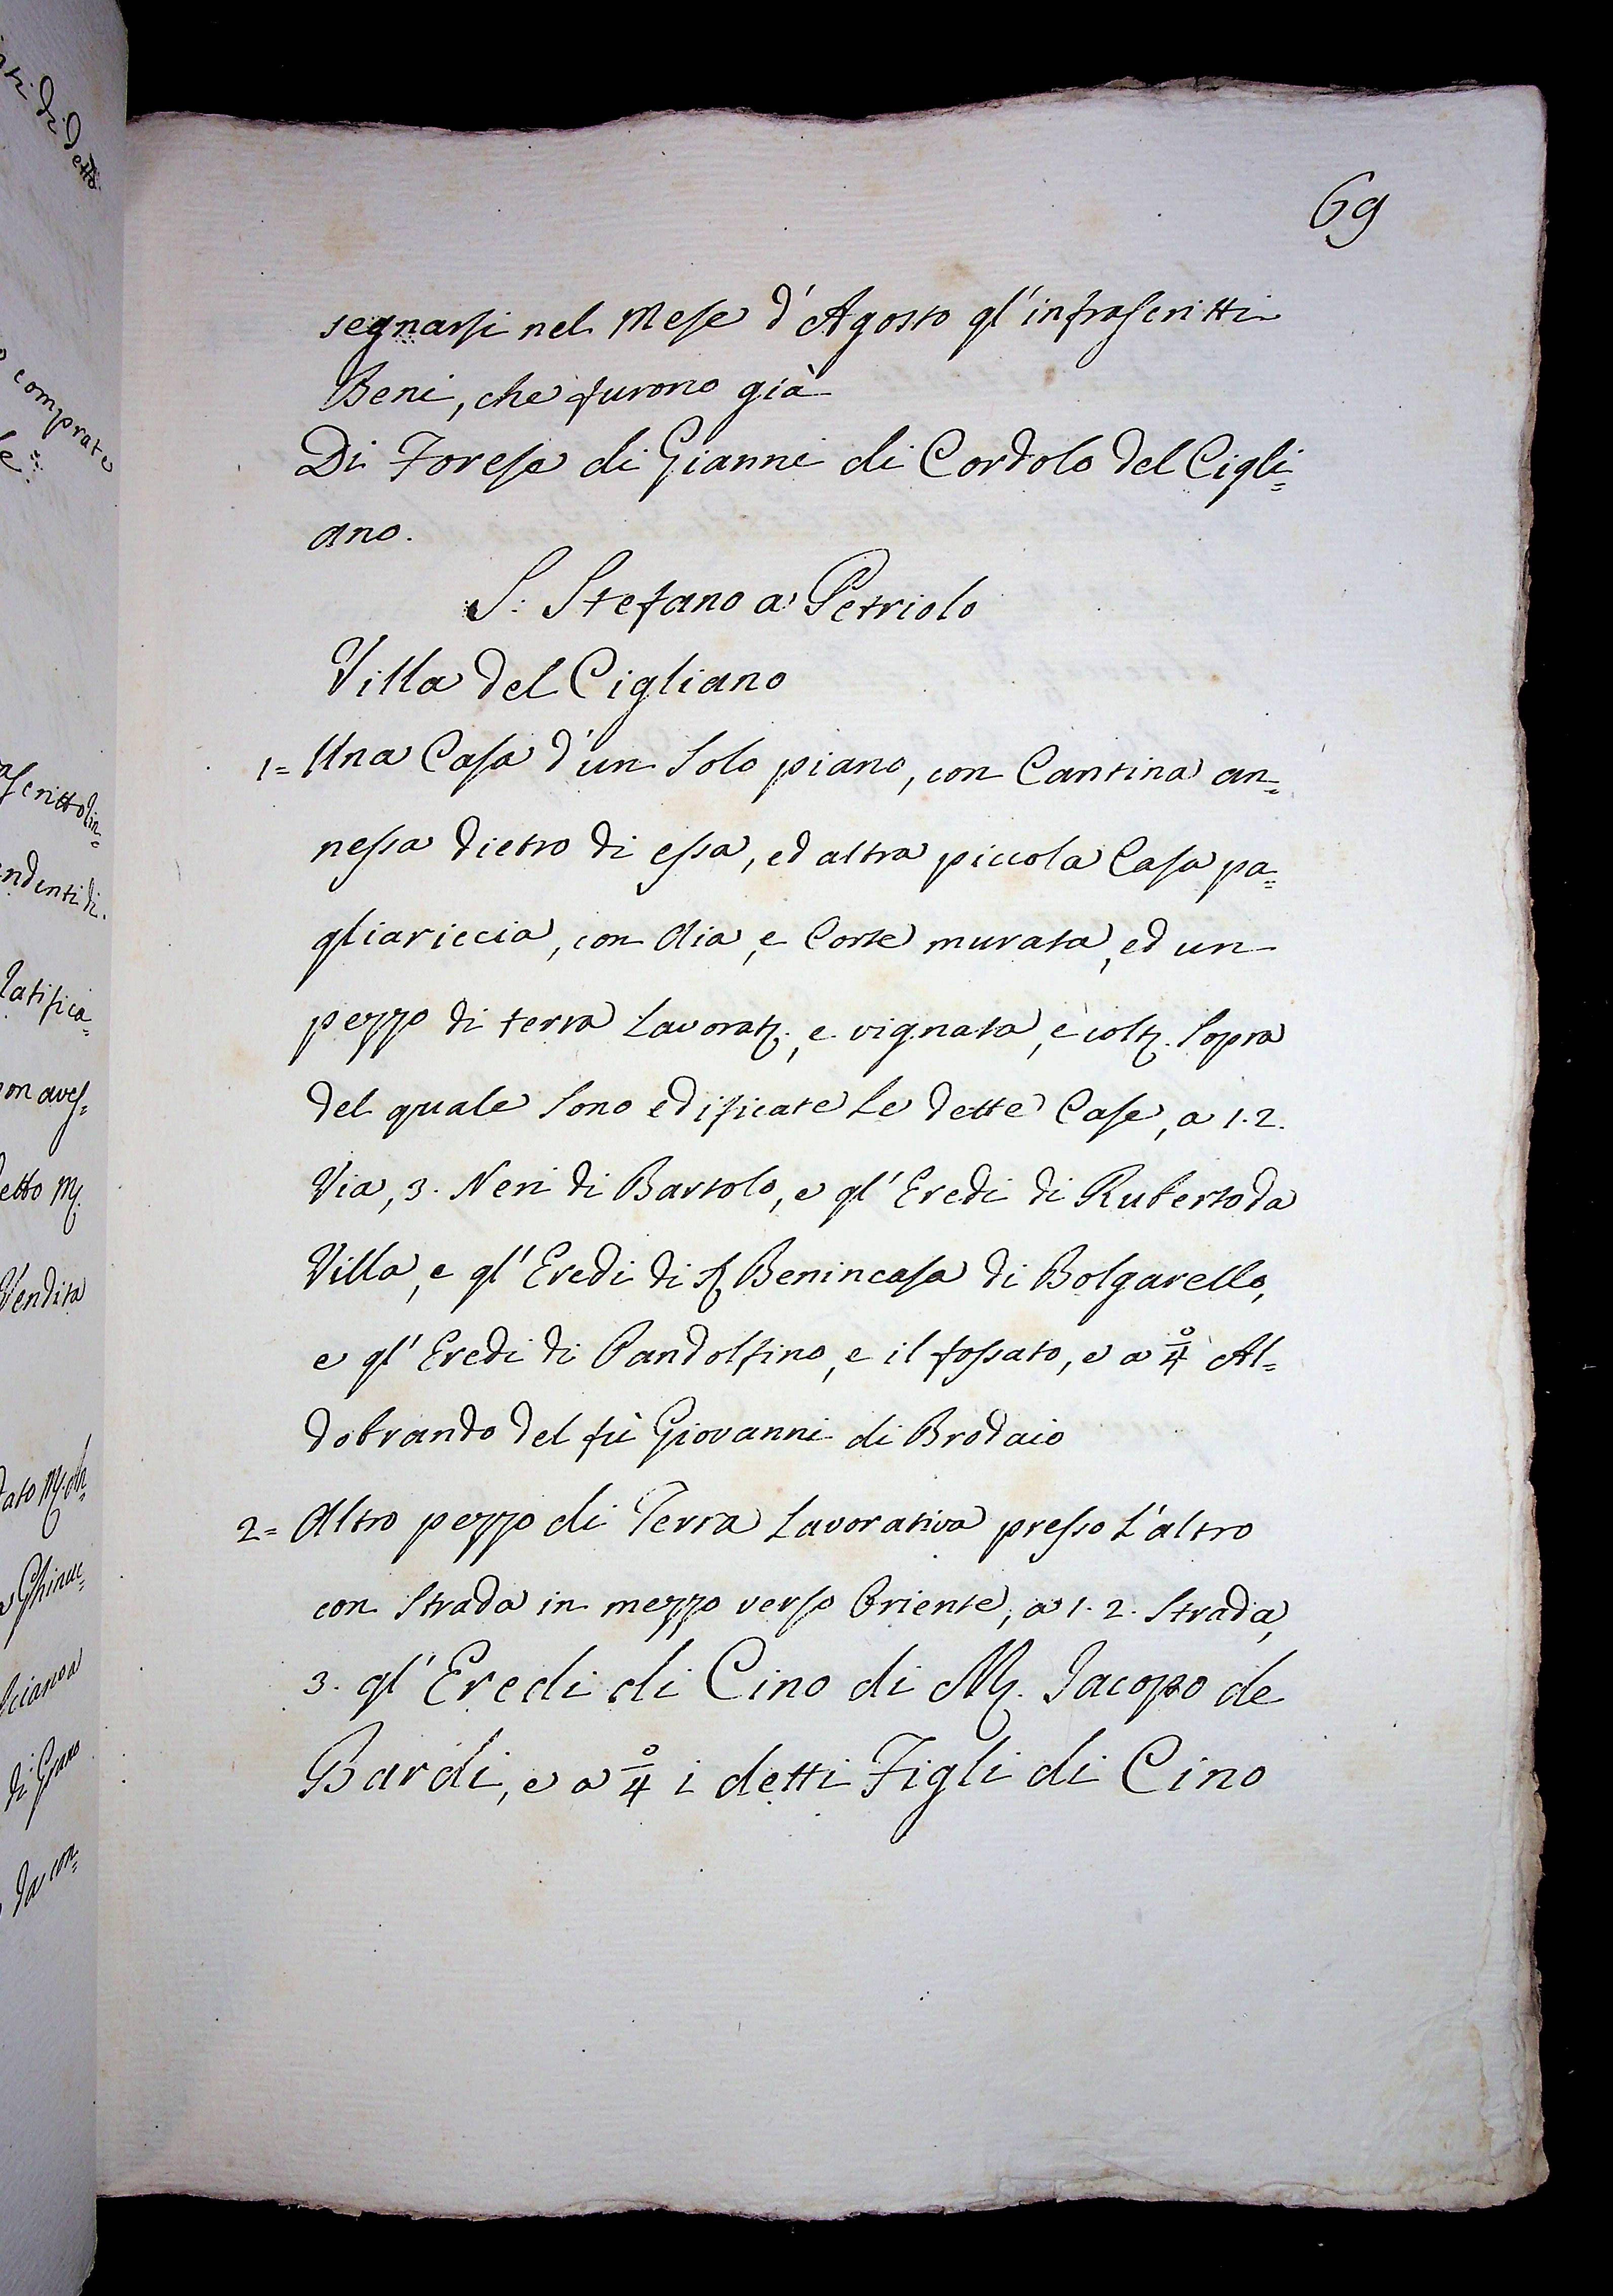 69
segnarsi nel Mese d'Agosto gl'infrascritti
Beni, che furono già
Di Forese di Gianni di Cordolo del Cigli=
ano.
S. Stefano a Petriolo
Villa del Cigliano
1= Una Casa d'un Solo piano, con Cantina an=
nessa dietro di essa, ed altra piccola Casa pa=
gliariccia, con Aia, e Corte murata, ed un
pezzo di terra Lavorat., e vignata, e colt. Sopra
del quale Sono edificate Le dette Case, a 1. 2.
Via, 3. Neri di Bartolo, e gl'Eredi di Ruberto da
Villa, e gl'Eredi di S. Benincasa di Bolgarello,
e gl'Eredi di Pandolfino, e il fossato, e a 4° Al=
dobrando del fù Giovanni di Brodaio
2= Altro pezzo di Terra Lavorativa presso L'altro
con Strada in mezzo verso Oriente, a 1. 2. Strada,
3. gl'Eredi di Cino di M. Jacopo de
Bardi, e a 4° i detti Figli di Cino
comprate
Ratifica=
etto M.
Vendita
di Grano
da con=